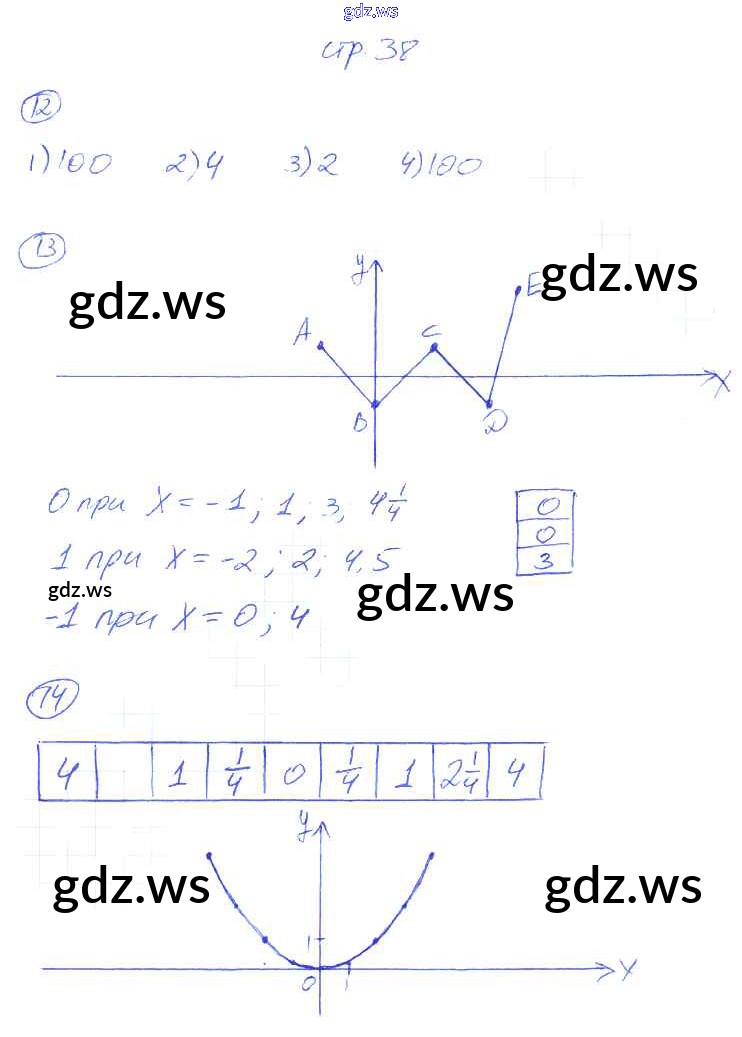 gdz.ws
стр. 38
12
1) 100 2) 4 3) 2 4) 100
13
y
E
gdz.ws
gdz.ws
A
C
X
B
D
0 при X = -1; 1; 3; 4 1/4
0
0
3
1 при X = -2; 2; 4,5
gdz.ws
gdz.ws
-1 при X = 0; 4
14
4 1 1/4 0 1/4 1 2 1/4 4
y
gdz.ws
gdz.ws
1
X
0
1